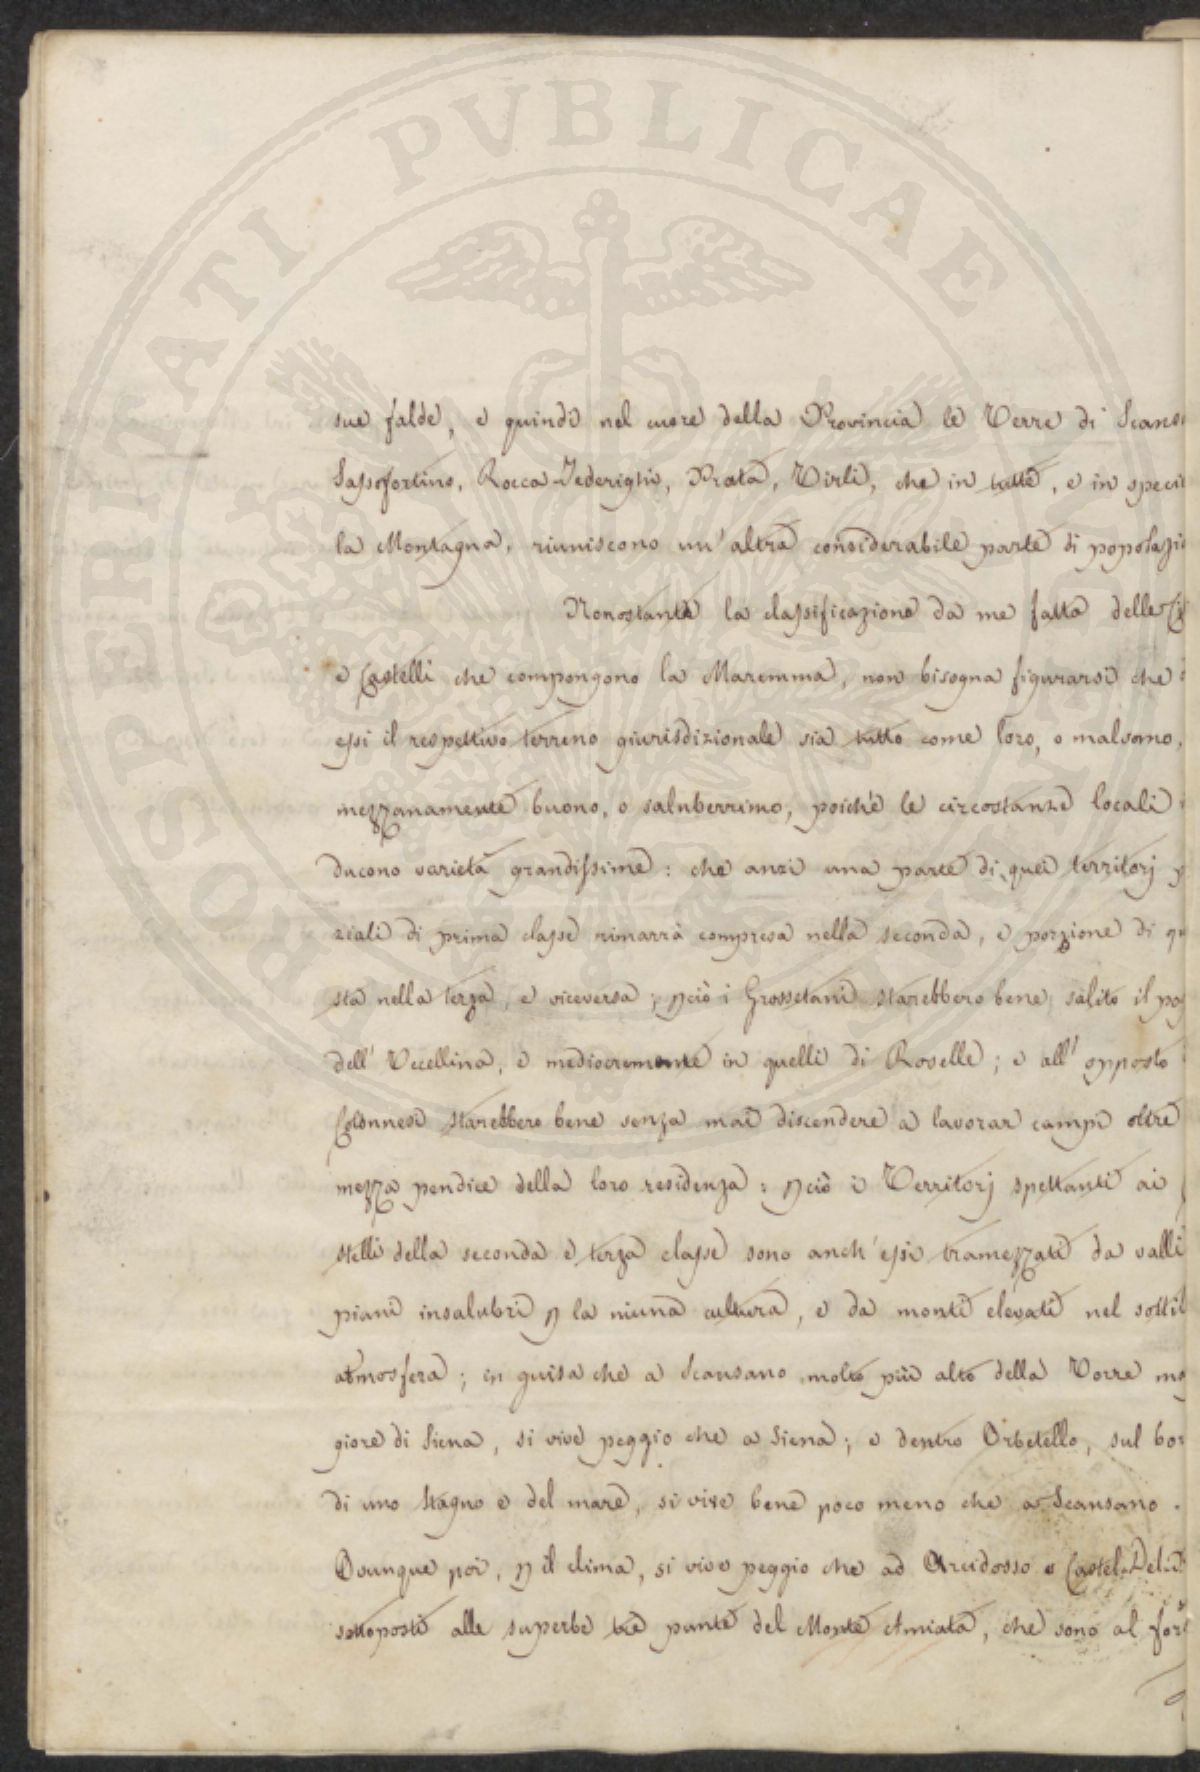 PROSPERITATI PUBLICAE
sue falde, e quindi nel cuore della Provincia le Terre di Scans
Sassofortino, Rocca-Federighi, Prata, Tirli, che in tutte, e in speci
la Montagna, riuniscono un'altra considerabile parte di popolazi
Nonostante la classificazione da me fatta delle
e Castelli che compongono la Maremma, non bisogna figurarsi che
essi il respettivo terreno giurisdizionale sia tutto come loro, o malsano,
mezzanamente buono, o saluberrimo, poichè le circostanze locali
ducono varietà grandissime: che anzi una parte di quei territorj
ziali di prima classe rimarrà compresa nella seconda, e porzione di qu
sta nella terza, e viceversa; pciò i Grossetani starebbero bene salito il pog
dell'Uccellina, e mediocremente in quelli di Roselle; e all'opposto
Colonnesi starebbero bene senza mai discendere a lavorar campi oltre
mezza pendice della loro residenza: pciò i Territorj spettanti ai
stelli della seconda e terza classe sono anch'essi tramezzati da valli
piani insalubri p la niuna cultura, e da monti elevati nel sottil
atmosfera; in guisa che a Scansano molto più alto della Torre mag
giore di Siena, si vive peggio che a Siena; e dentro Orbetello, sul bor
di uno stagno e del mare, si vive bene poco meno che a Scansano.
Ovunque poi, p il clima, si vive peggio che ad Arcidosso e Castel-Del
sottoposti alle superbe tre punte del Monte Amiata, che sono al for